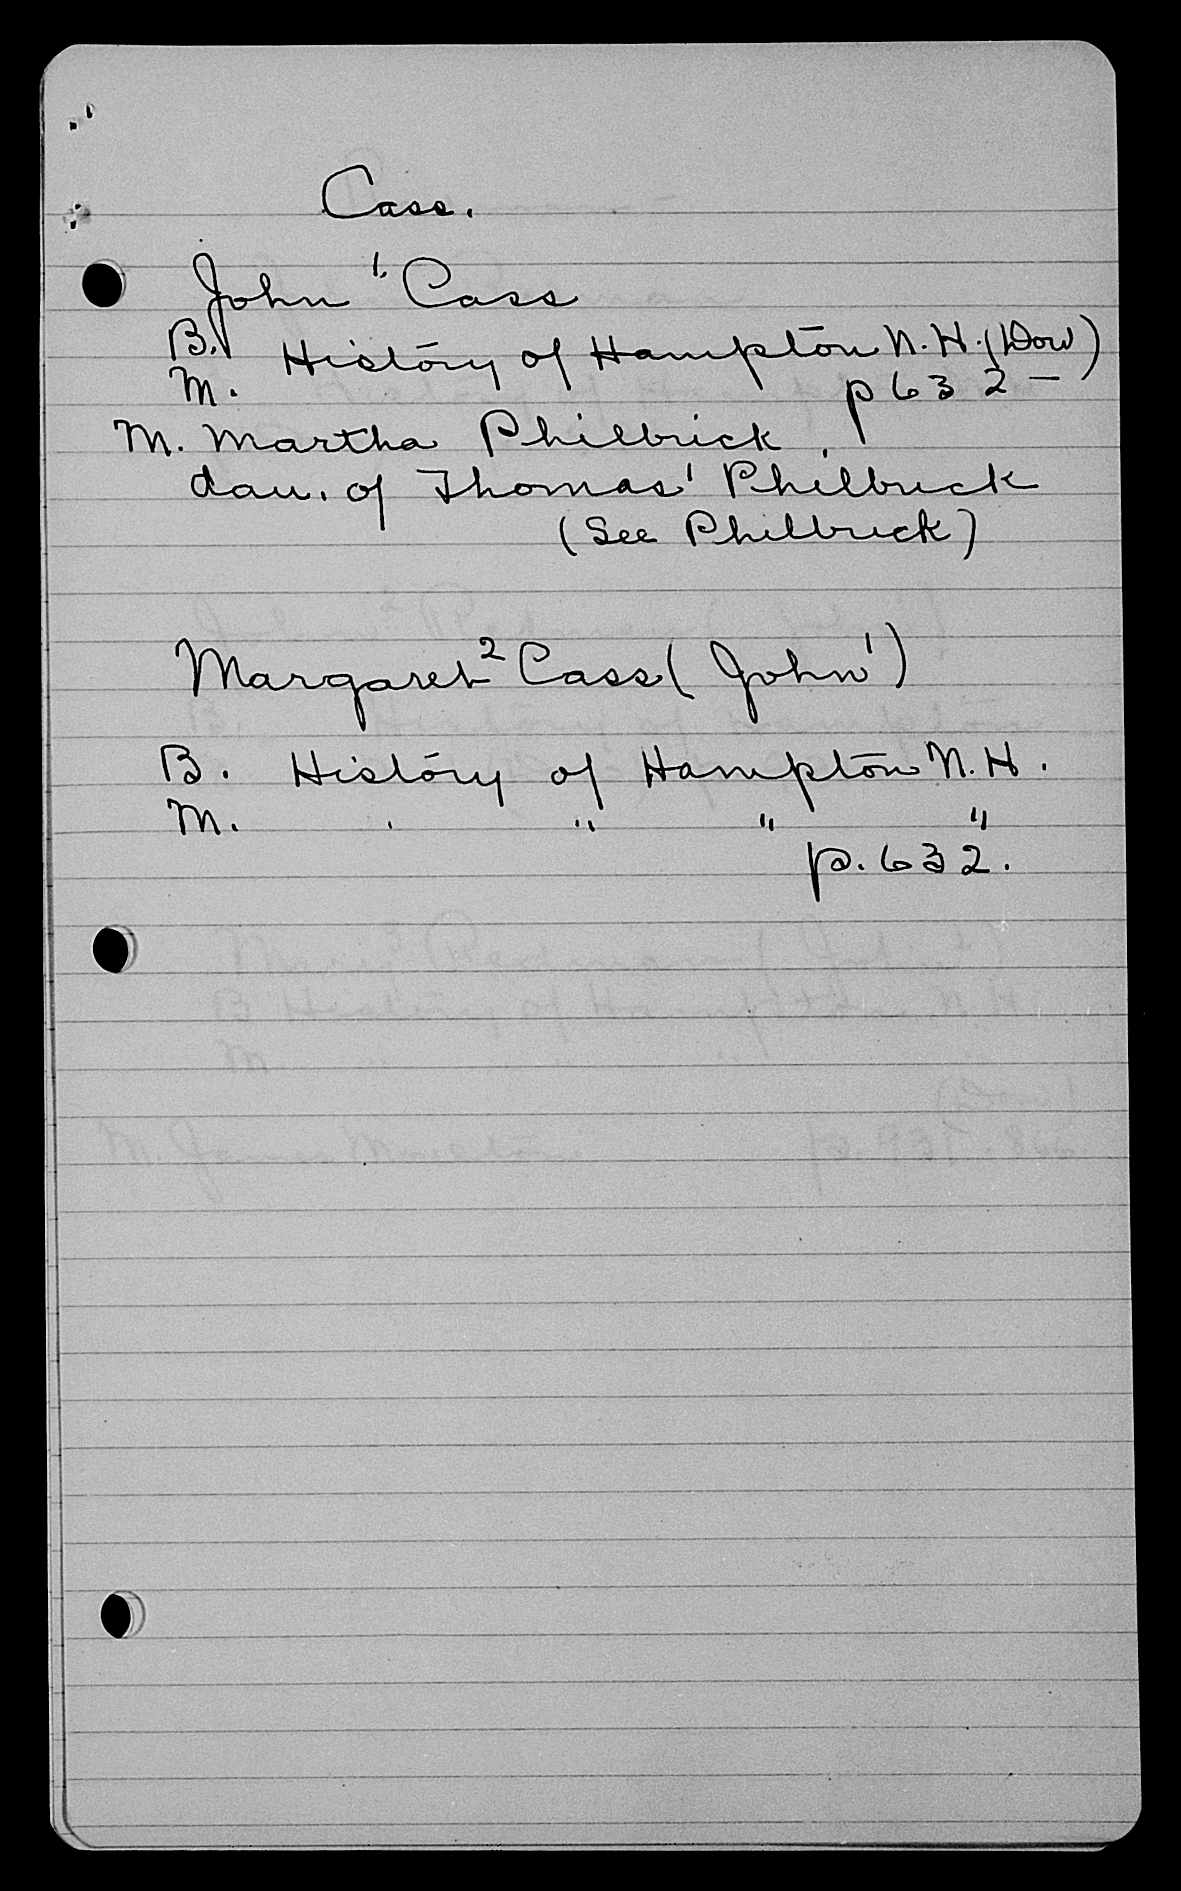 Cass.
John¹ Cass
B. History of Hampton N.H. (Dow)
M. p 632 –
M. Martha Philbrick
dau. of Thomas¹ Philbrick
(See Philbrick)
Margaret² Cass (John¹)
B. History of Hampton N.H.
M. " " " "
p. 632.